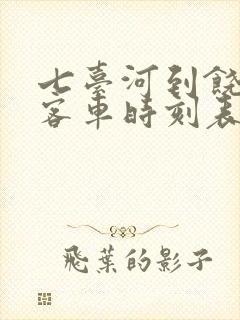 七臺河到饶
客車時刻表
飛葉的影子